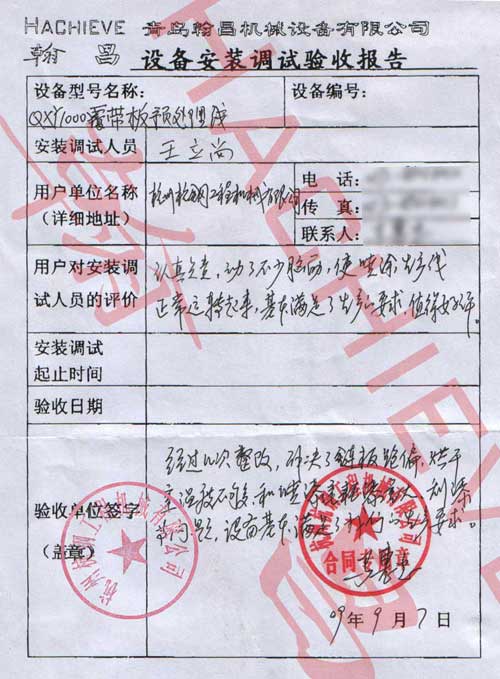 HACHIEVE 青岛翰昌机械设备有限公司
翰 昌 设备安装调试验收报告
设备型号名称: 设备编号:
QXY1000履带板预处理线
安装调试人员 王立尚
用户单位名称 杭州杭钢工程机械有限公司 电 话:
(详细地址) 传 真:
联系人:
用户对安装调 认真负责,动了不少脑筋,使喷涂生产线
试人员的评价 正常运转起来,基本满足了生产要求,值得好评。
安装调试
起止时间
验收日期
经过几次整改,解决了链板跑偏,烘干
室温度不够,和喷漆室
验收单位签字 等问题,设备基本满足了我们的生产要求。
(盖章)
合同专用章
09年9月7日
杭州杭钢工程机械有限公司
HACHIEVE
翰昌